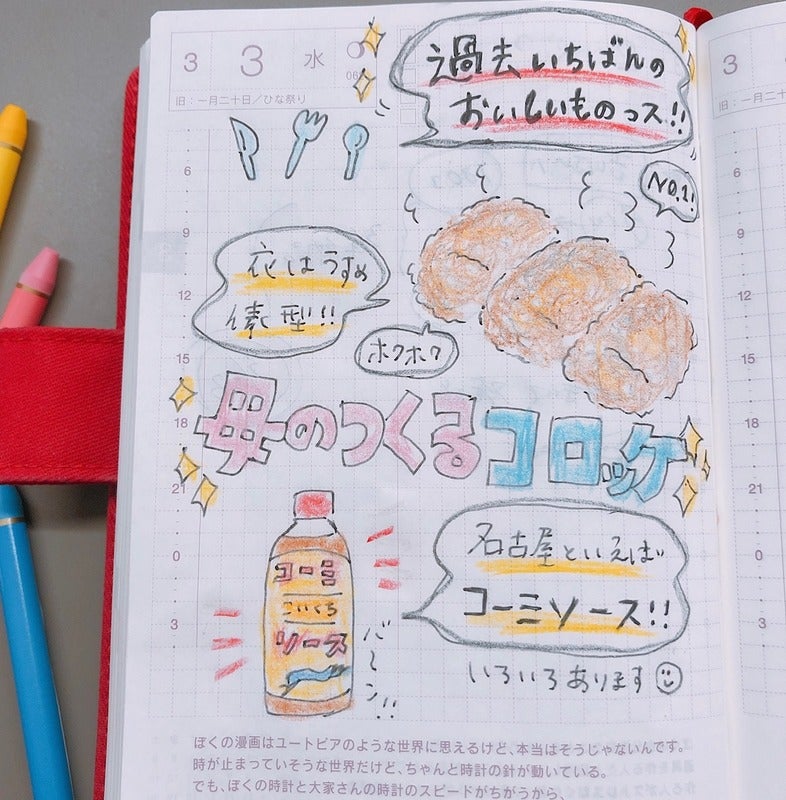 3 3 水
旧：一月二十日／ひな祭り
過去いちばんの
おいしいものっス!!
NO.1!
衣はうすめ
俵型!!
ホクホク
母のつくるコロッケ
名古屋といえば
コーミソース!!
コーミ
こいくち
ソース
バーン!!
いろいろあります
6
9
12
15
18
21
0
3
ぼくの漫画はユートピアのような世界に思えるけど、本当はそうじゃないんです。
時が止まっていそうな世界だけど、ちゃんと時計の針が動いている。
でも、ぼくの時計と大家さんの時計のスピードがちがうから、
3
旧：一月二十
6
9
12
15
18
21
0
3